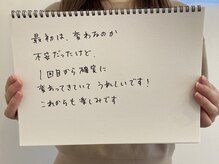 最初は、変わるのか
不安だったけど、
1回目から確実に
変わってきていて うれしいです!
これからも楽しみです